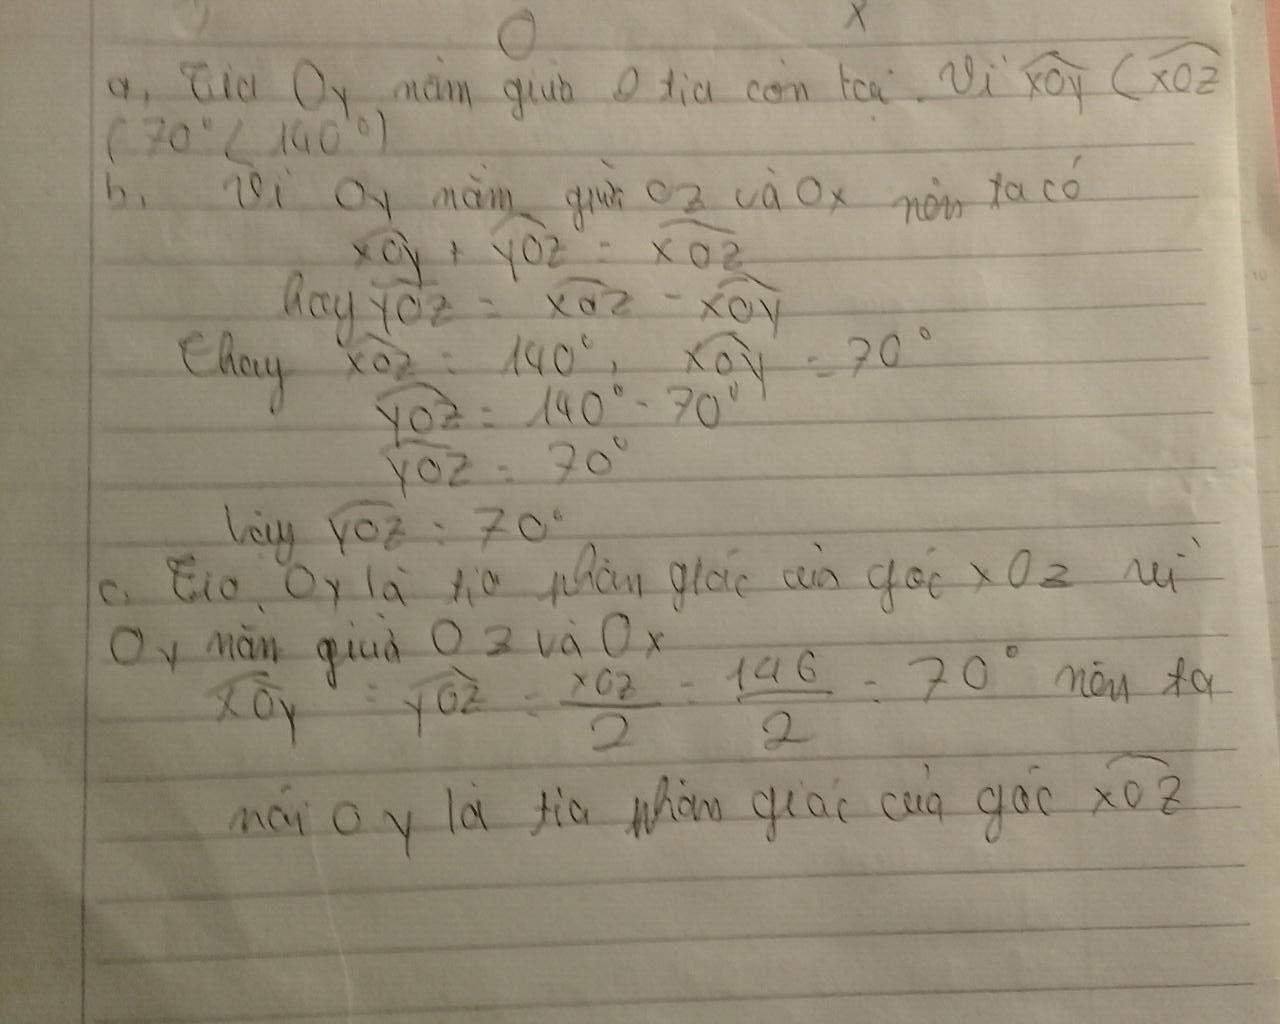 O x
a, Tia Oy nằm giữa 2 tia còn lại. Vì xOy < xOz
(70° < 140°)
b, Vì Oy nằm giữa Oz và Ox nên ta có
xOy + yOz = xOz
hay yOz = xOz - xOy
Thay xOz = 140°, xOy = 70°
yOz = 140° - 70°
yOz = 70°
Vậy yOz = 70°
c. Tia Oy là tia phân giác của góc xOz vì
Oy nằm giữa Oz và Ox
xOy = yOz = xOz/2 = 140/2 = 70° nên ta
nói Oy là tia phân giác của góc xOz